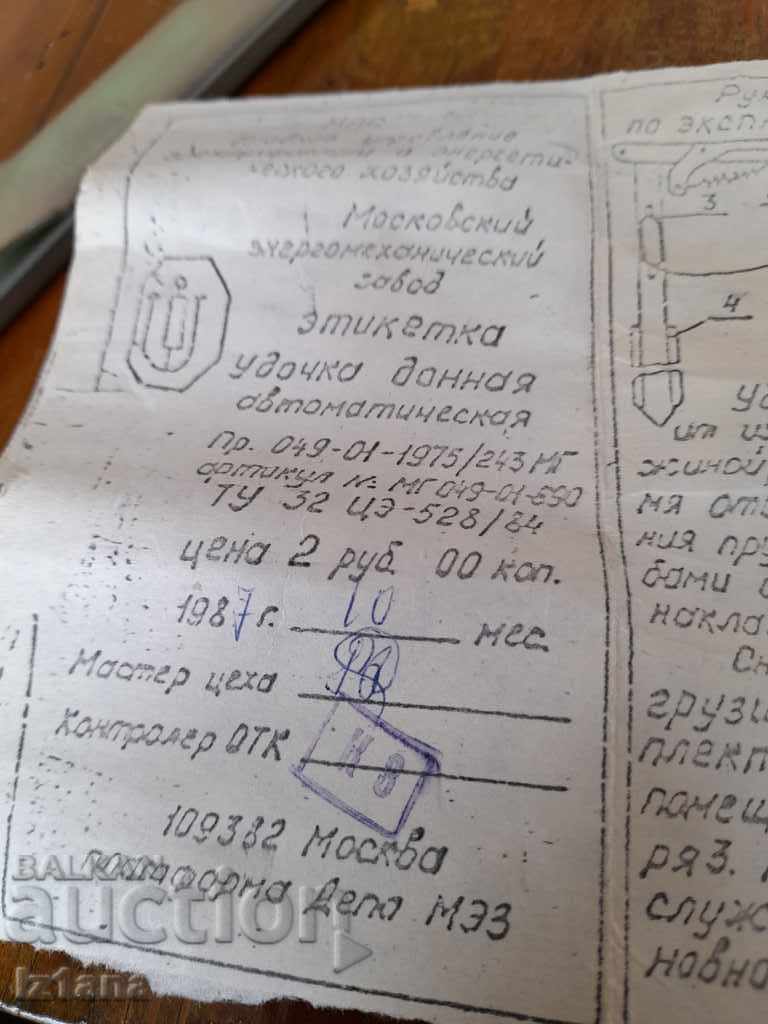 энергети-
ческого хозяйства
Московский
энергомеханический
завод
этикетка
удочка донная
автоматическая
Пр. 049-01-1975/243 МГ
артикул № МГ 049-01-690
ТУ 32 ЦЭ-528/84
цена 2 руб. 00 коп.
1987 г. 10 мес.
Мастер цеха
Контролер ОТК
К 3
109382 Москва
платформа Депо МЭЗ
Рук
по эксп
3
4
Уд
ит из
жиной,
мя отв
ния пру
бами о
накла
Сн
грузи
плект
помещ
ряз.
служ
новно
BALKAN
auction
Iz1ana